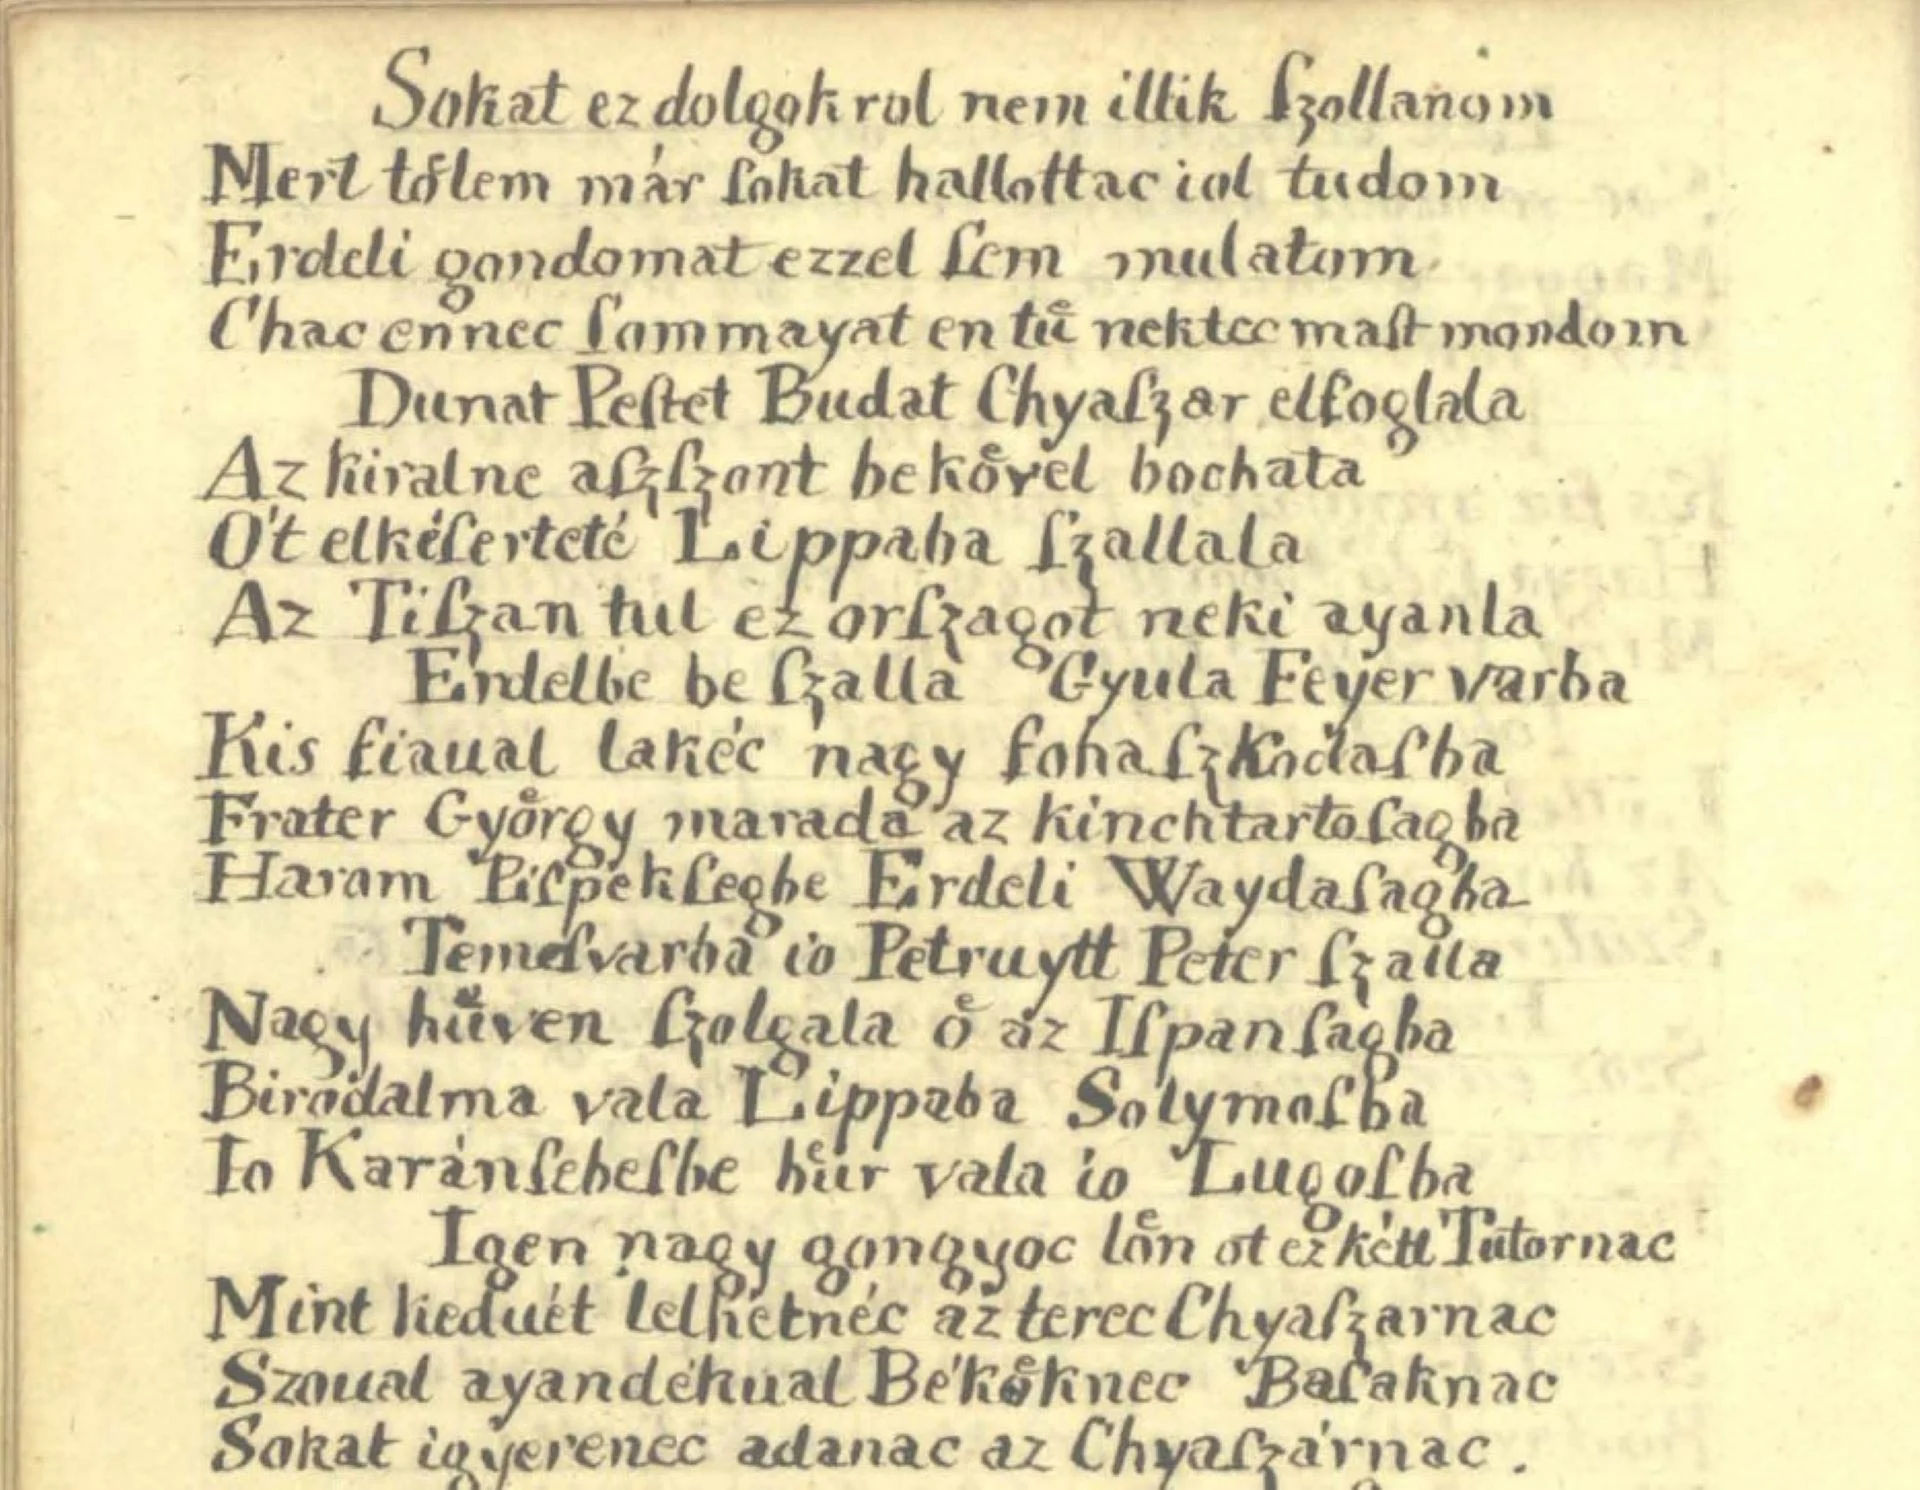 Sokat ez dolgokrol nem illik ſzollanom
Mert to̊lem már ſokat hallottac iol tudom
Erdeli gondomat ezzel ſem mulatom
Chac ennec ſommayat en tů nektec maſt mondom
Dunat Peſtet Budat Chyaſzar elfoglala
Az kiralne aſzſzont beko̊vel bochata
Ót elkéſerteté Lippaba ſzallala
Az Tiſzan tul ez orſzagot neki ayanla
Erdelbe be ſzalla Gyula Feyer varba
Kis fiaual lakéc nagy fohaſzkodaſba
Frater Gyo̊rgy marada az kinchtartoſagba
Harom Piſpekſegbe Erdeli Waydaſagba
Temeſvarba io Petruytt Peter ſzalla
Nagy hůven ſzolgala o̊ az Iſpanſagba
Birodalma vala Lippaba Solymoſba
Io Karánſebeſbe hůr vala io Lugoſba
Igen nagy gongyoc lo̊n ot ez kétt Tutornac
Mint keduét lelhetnéc az terec Chyaſzarnac
Szoual ayandékual Béko̊knec Baſaknac
Sokat igyerenec adanac az Chyaſzárnac.